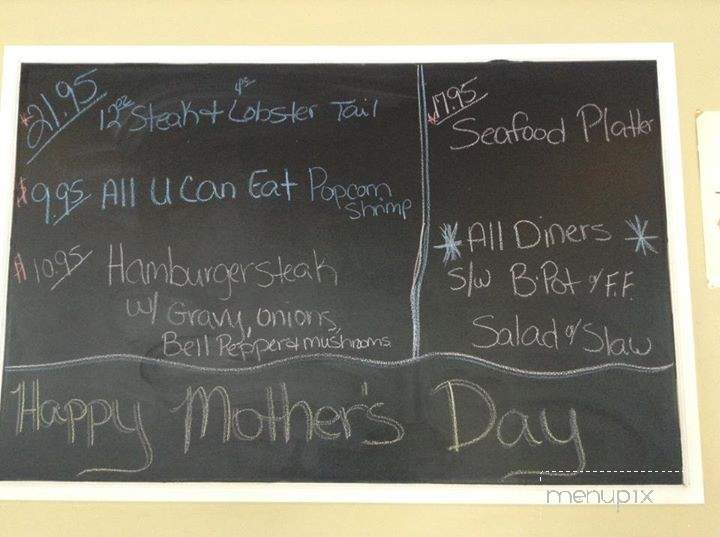 $21.95 12oz Steak & Lobster Tail
$9.95 All U Can Eat Popcorn
Shrimp
$10.95 Hamburger steak
w/ Gravy, onions,
Bell Pepper & mushrooms
$17.95
Seafood Platter
*All Diners*
S/w B.Pot or F.F.
Salad or Slaw
Happy Mother's Day
menupix